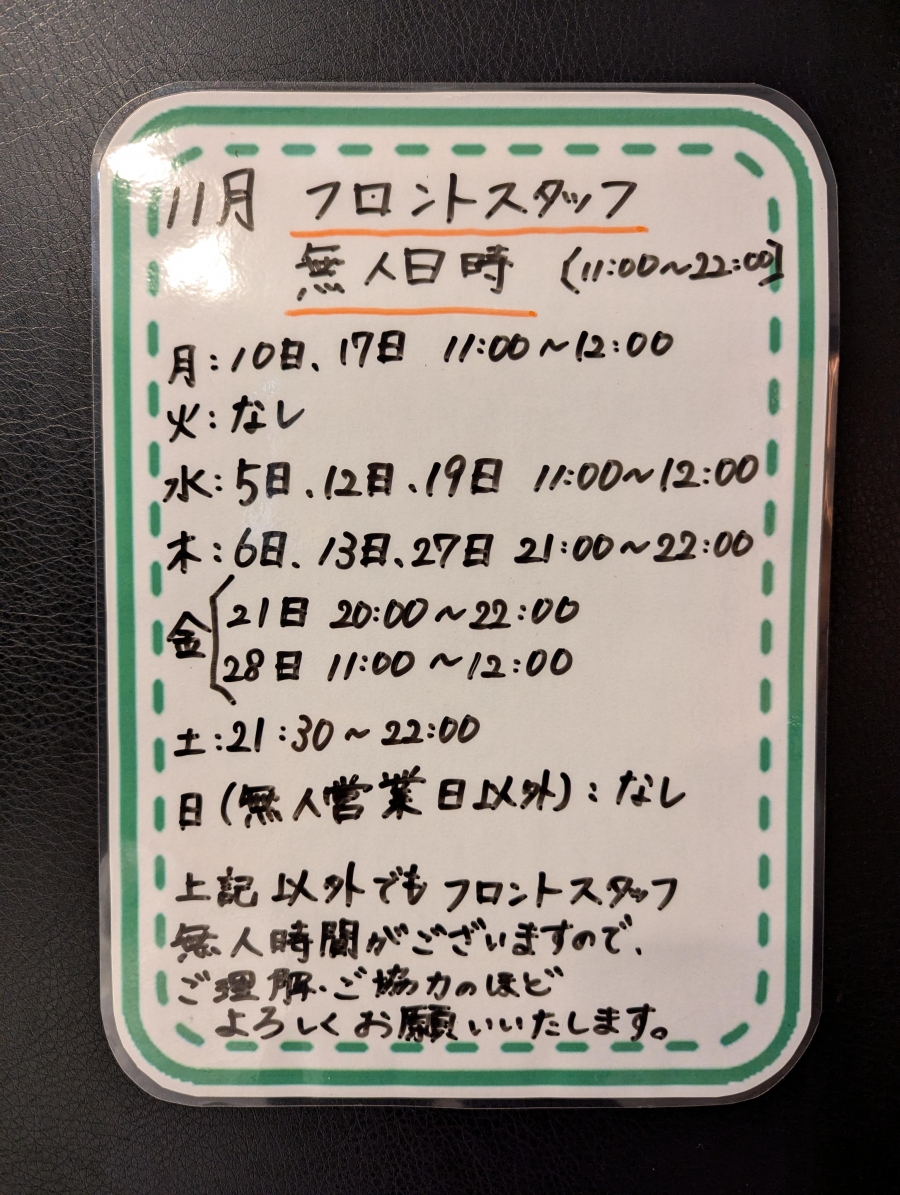 11月 フロントスタッフ
無人日時 (11:00～22:00)
月:10日、17日 11:00～12:00
火:なし
水:5日、12日、19日 11:00～12:00
木:6日、13日、27日 21:00～22:00
金 21日 20:00～22:00
28日 11:00～12:00
土:21:30～22:00
日(無人営業日以外):なし
上記以外でもフロントスタッフ
無人時間がございますので、
ご理解・ご協力のほど
よろしくお願いいたします。